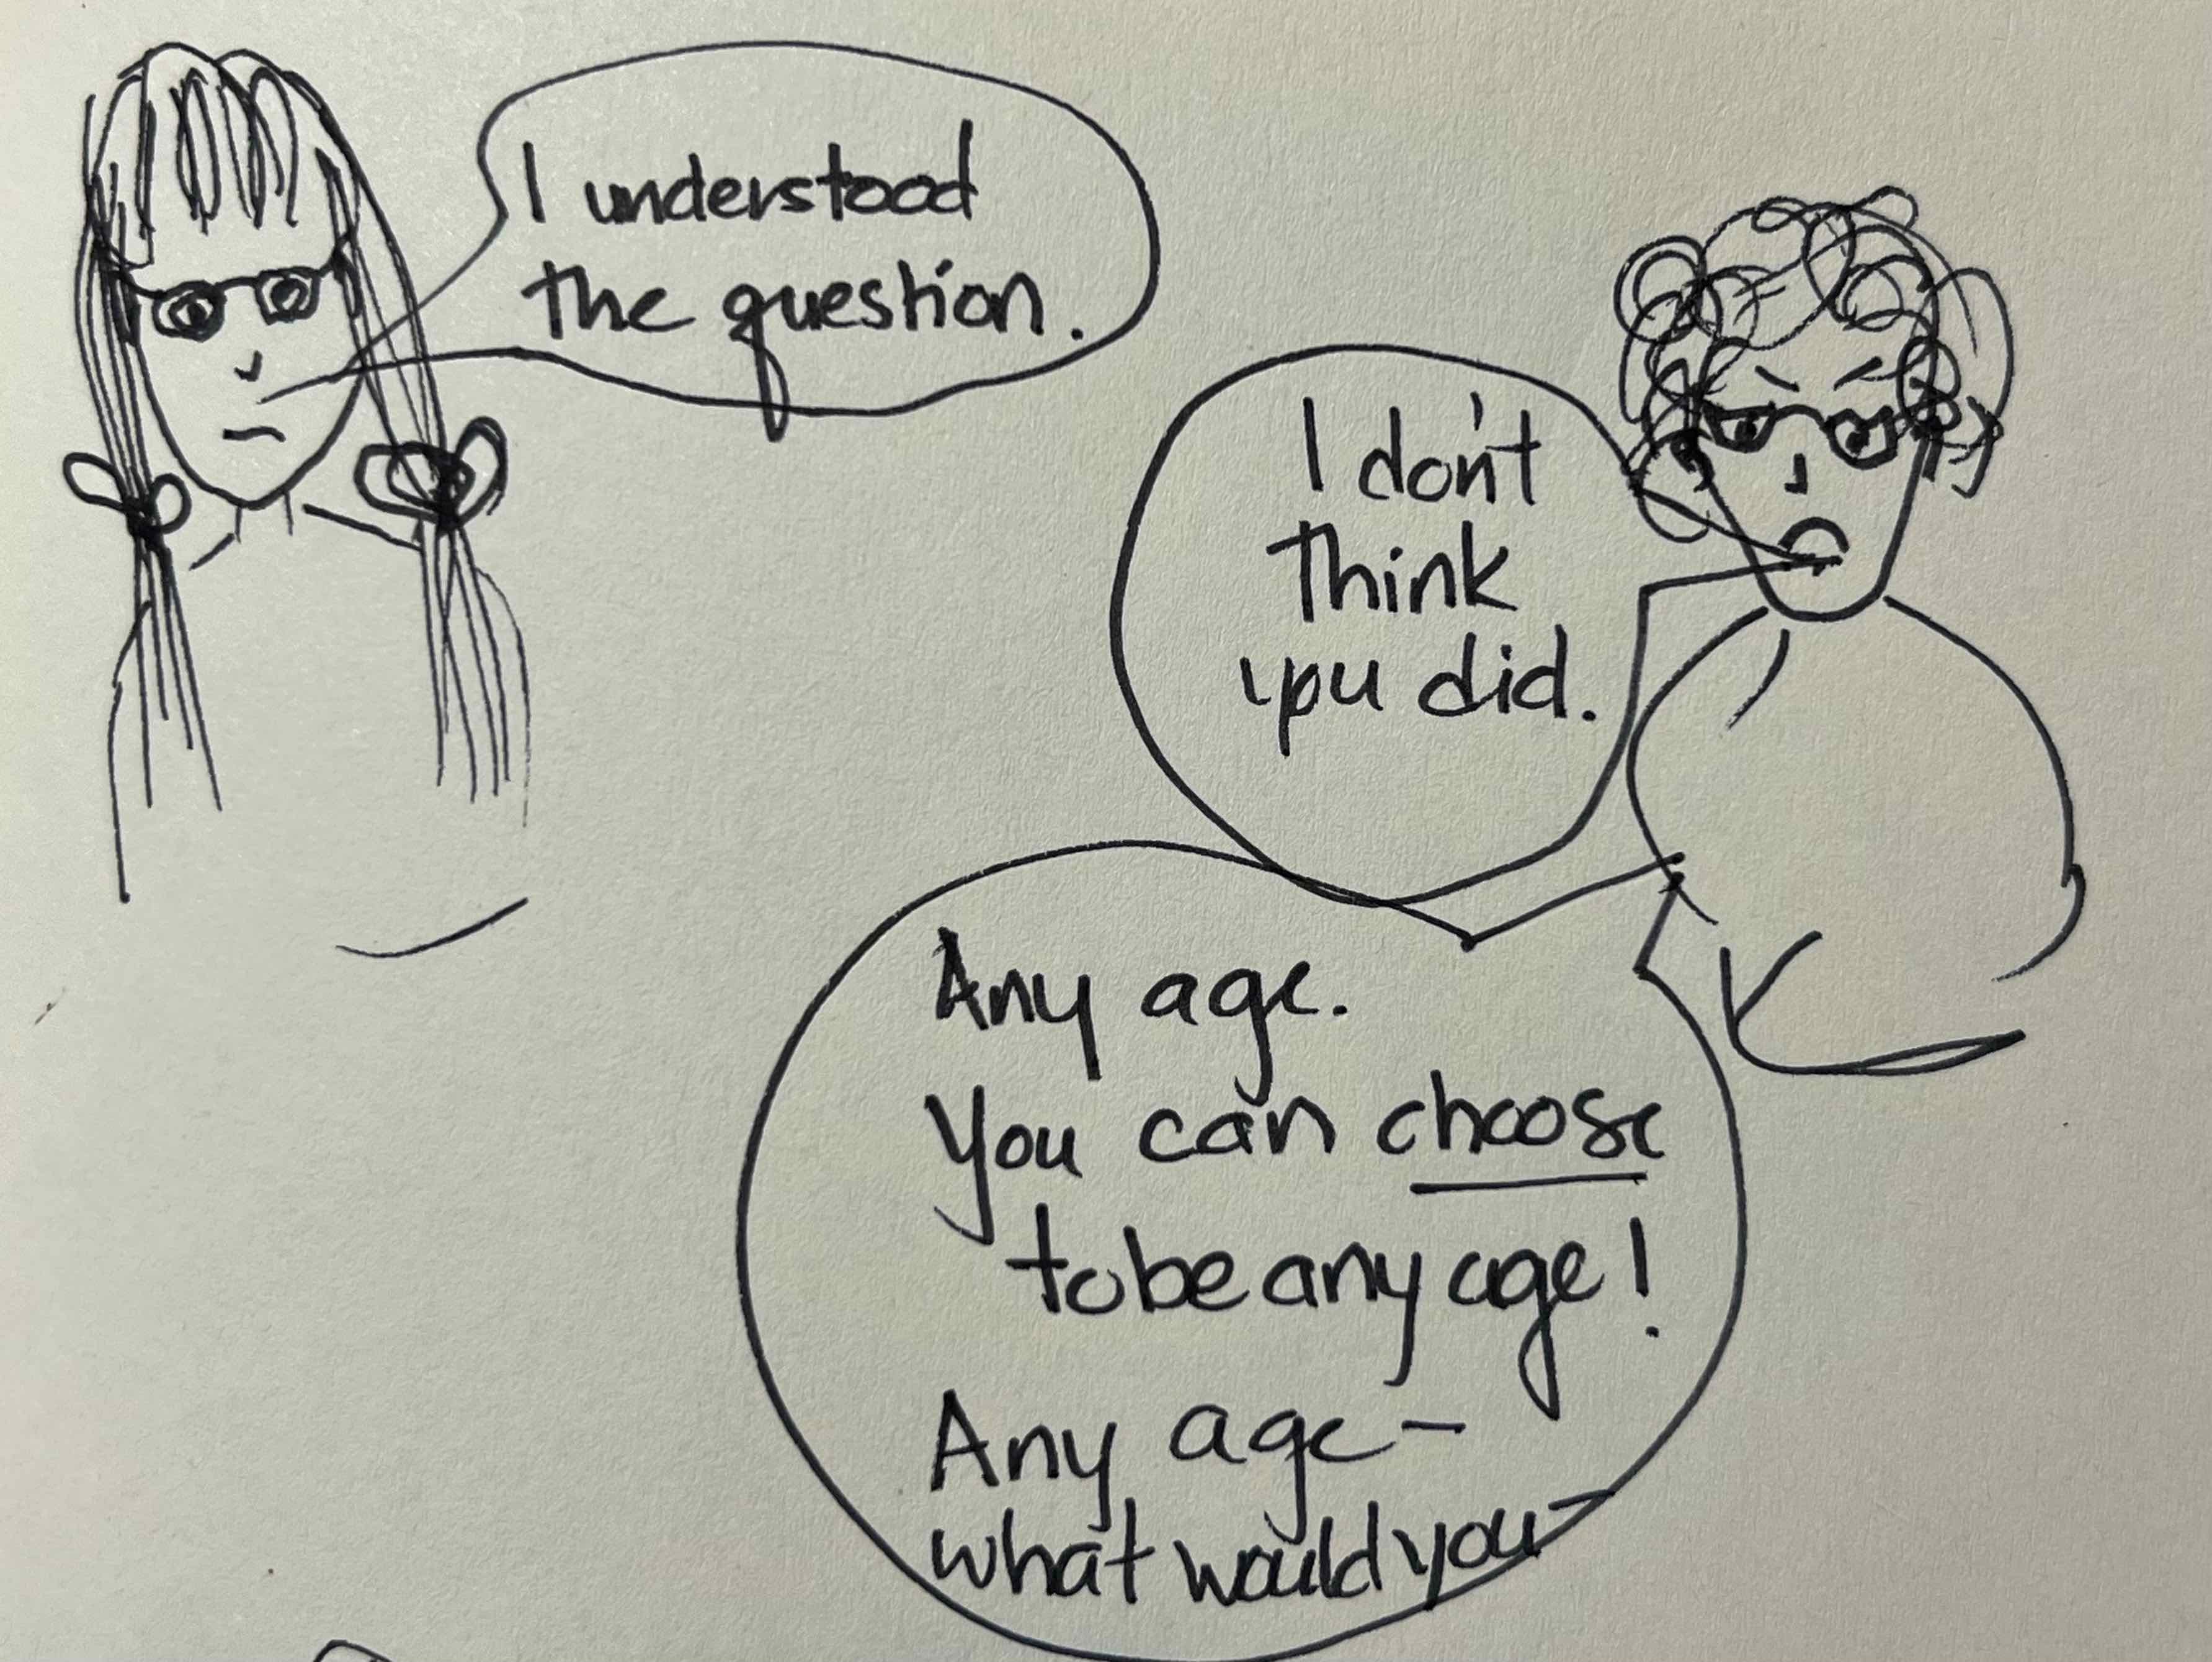 I understood
the question.
I don't
think
you did.
Any age.
You can choose
to be any age!
Any age –
what would you –